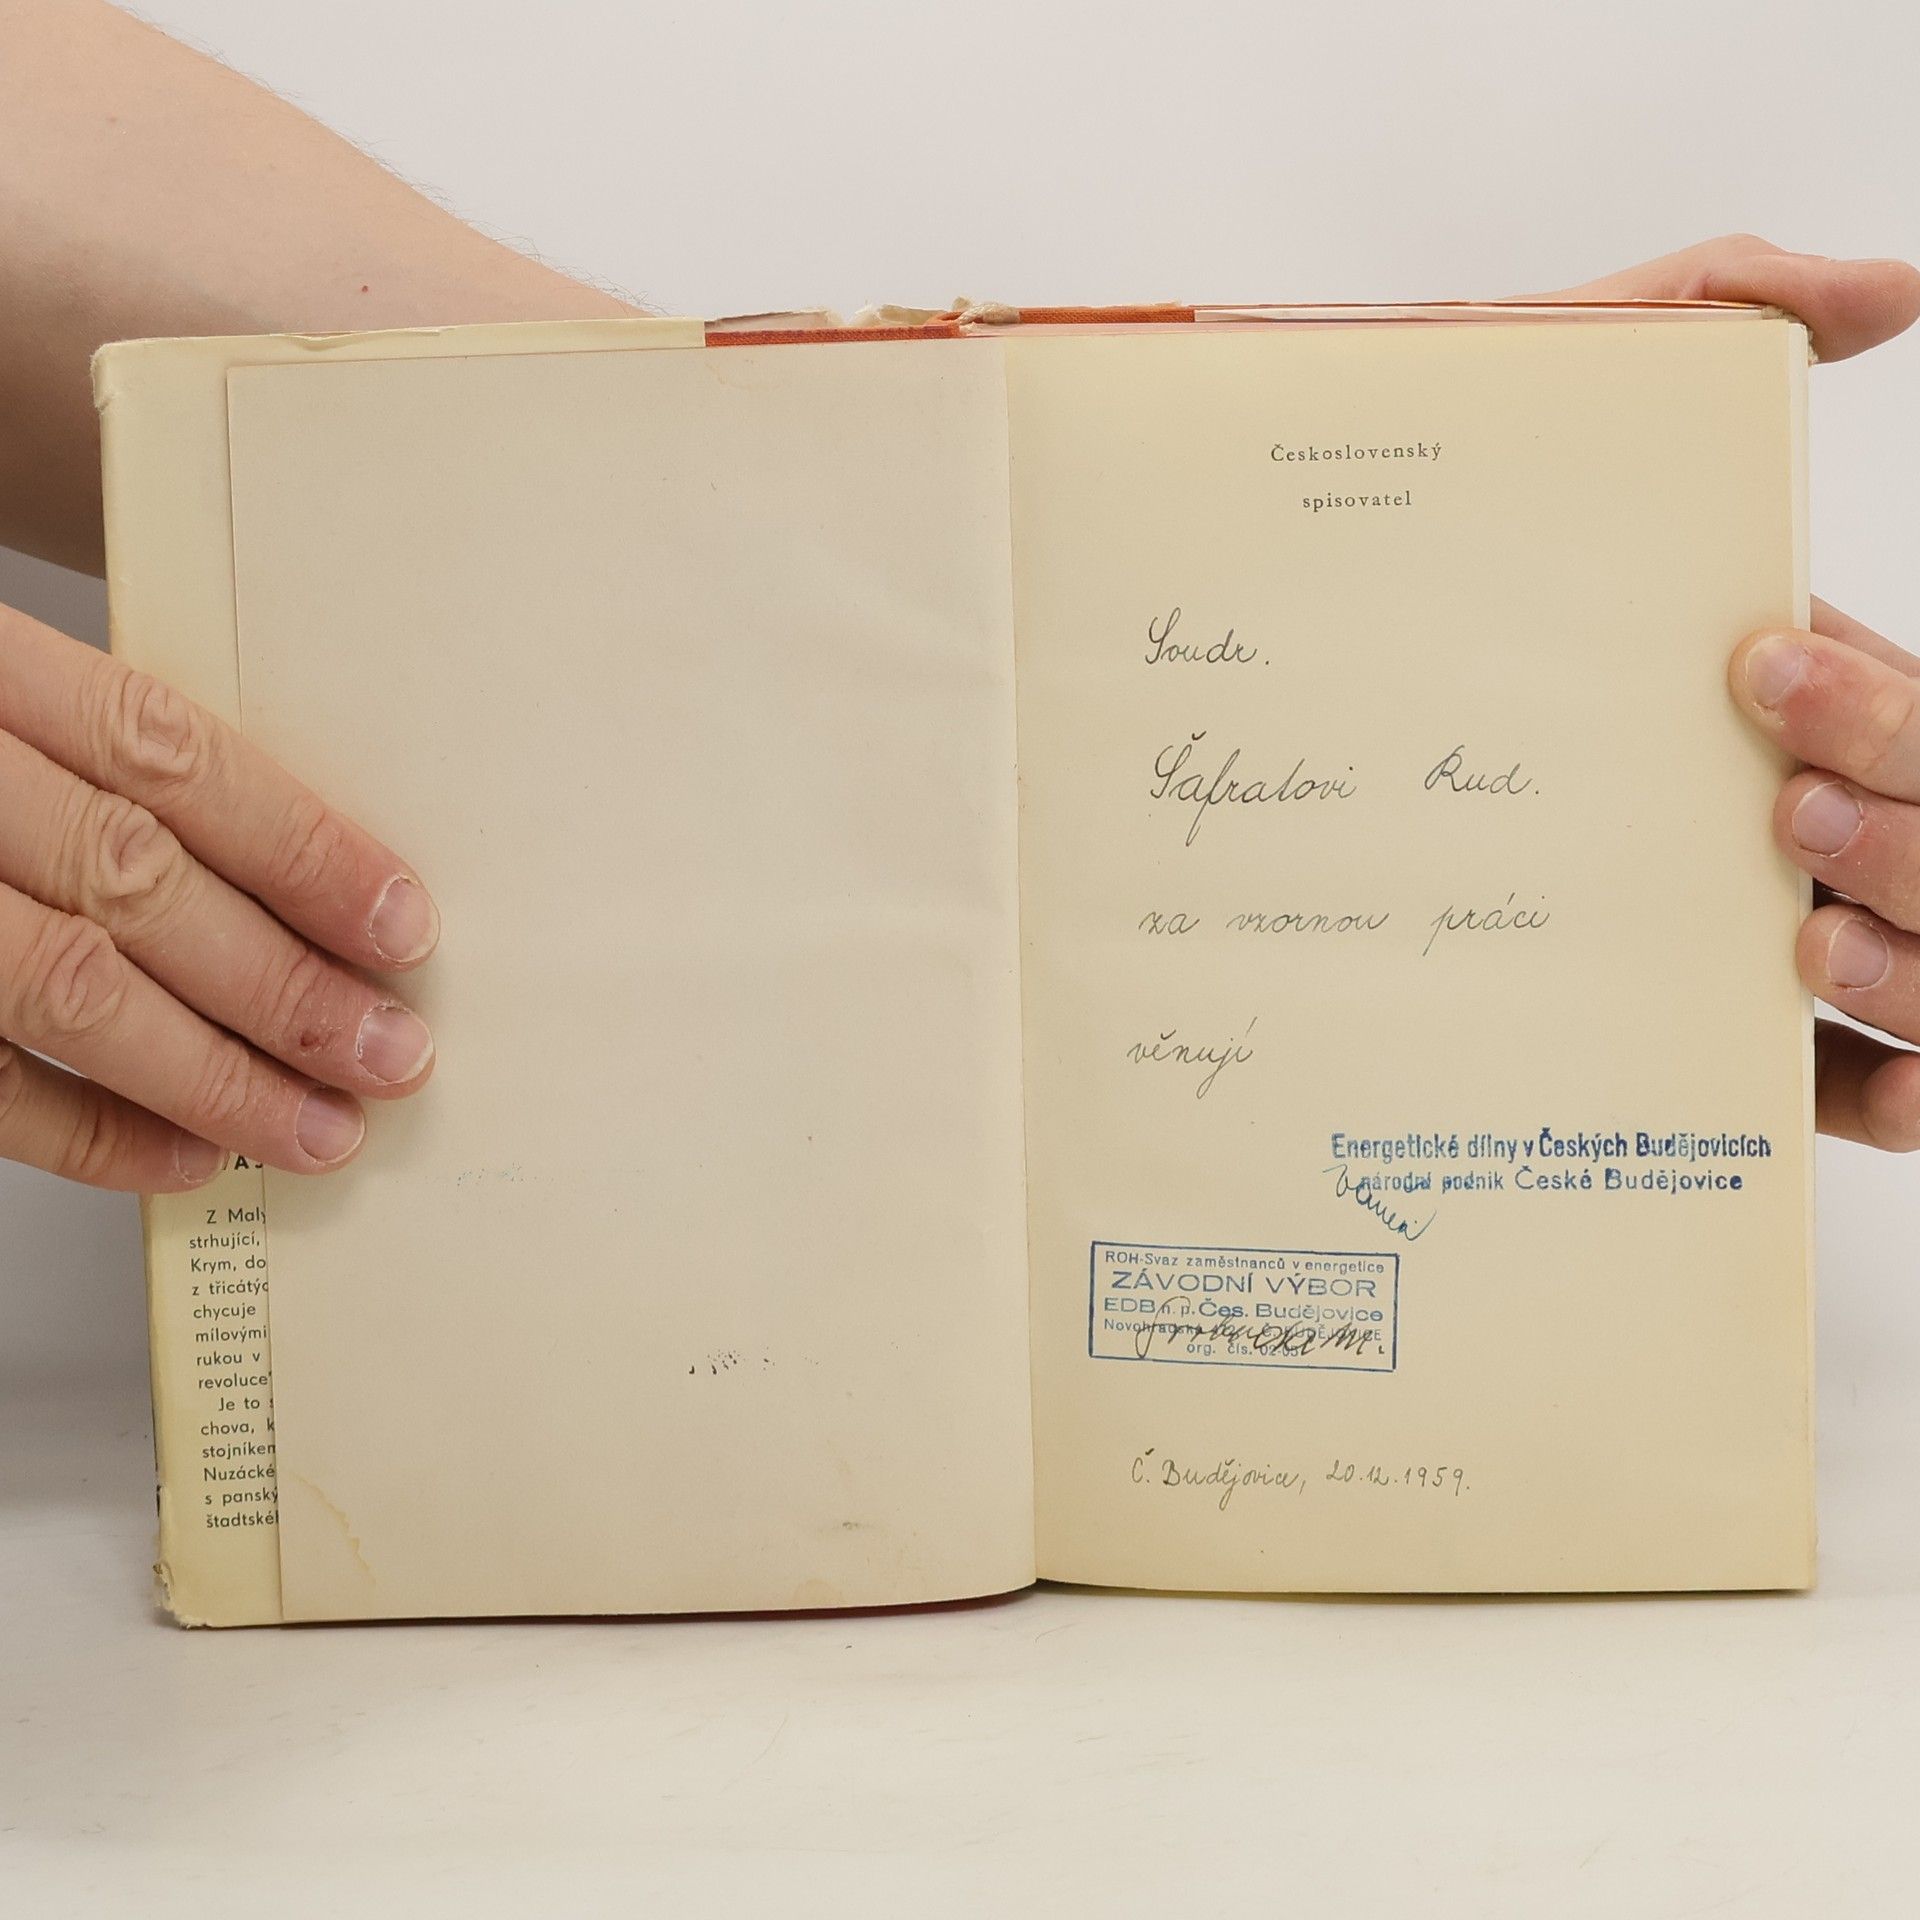 Z Malý
strhující,
Krym, do
z třicátýc
chycuje
mílovými
rukou v
revoluce"
Je to s
chova, k
stojníkem
Nuzácké
s panský
štadtskéh
Československý
spisovatel
Soudr.
Šafratovi Rud.
za vzornou práci
věnují
Energetické dílny v Českých Budějovicích
národní podnik České Budějovice
ROH-Svaz zaměstnanců v energetice
ZÁVODNÍ VÝBOR
EDB n. p. Čes. Budějovice
Novohradská Č. BUDĚJOVICE
org. čís. 02-05
Č. Budějovice, 20.12.1959.